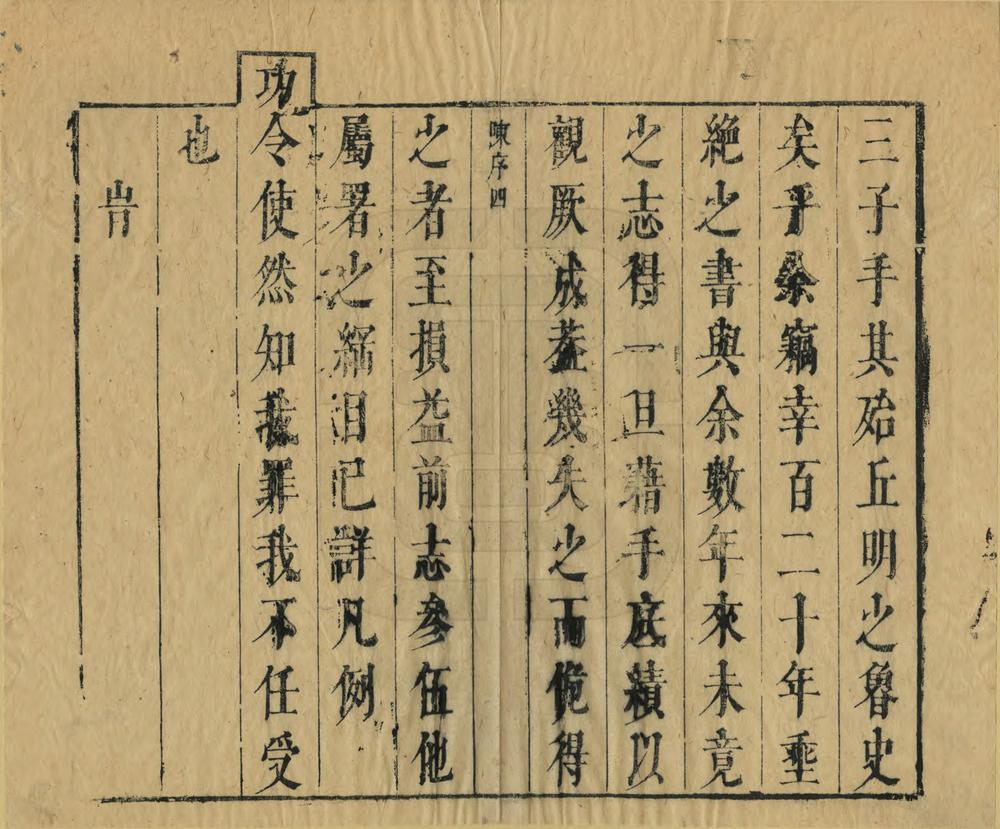 三子手其殆丘明之魯史
矣乎余竊幸百二十年垂
絶之書與余數年來未竟
之志得一旦藉手底績以
觀厥成葢幾失之而僥得
陳序四
之者至損益前志參伍他
屬署之𦆵汨已詳凡例
功令使然知我罪我不任受
也
旹